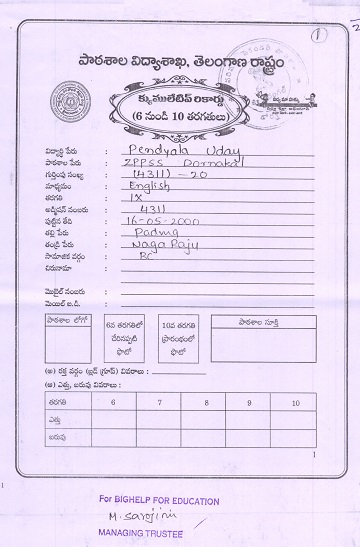 1
పాఠశాల విద్యాశాఖ, తెలంగాణ రాష్ట్రం
క్యుములేటివ్ రికార్డు
(6 నుండి 10 తరగతులు)
విద్యార్థి పేరు : Pendyala Uday
పాఠశాల పేరు : ZPPSS Dornakal
గుర్తింపు సంఖ్య : (4311) - 20
మాధ్యమం : English
తరగతి : IX
అడ్మిషన్ నంబరు : 4311
పుట్టిన తేది : 16-05-2000
తల్లి పేరు : Padma
తండ్రి పేరు : Naga Raju
సామాజిక వర్గం : BC
చిరునామా :
మొబైల్ నంబరు :
మెయిల్ ఐ.డి. :
పాఠశాల లోగో
6వ తరగతిలో చేరినప్పటి ఫొటో
10వ తరగతి ప్రారంభంలో ఫొటో
పాఠశాల సూక్తి
(అ) రక్త వర్గం (బ్లడ్ గ్రూప్) వివరాలు :
(ఆ) ఎత్తు, బరువు వివరాలు :
తరగతి 6 7 8 9 10
ఎత్తు
బరువు
1
For BIGHELP FOR EDUCATION
M. Sarojini
MANAGING TRUSTEE